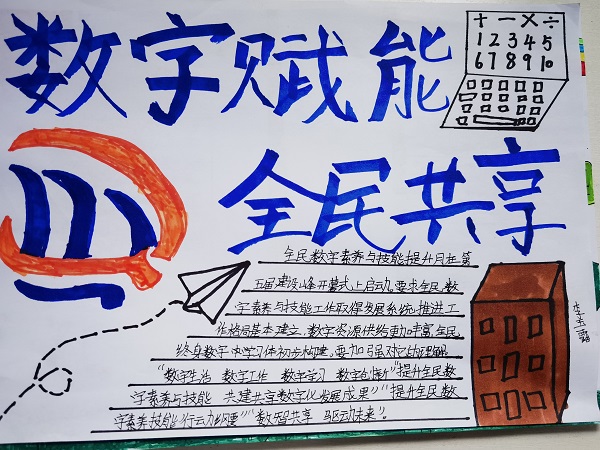 数字赋能
+ - × ÷
1 2 3 4 5
6 7 8 9 10
全民共享
全民数字素养与技能提升月在第
五届建设峰开幕式上启动,要求全民数
字素养与技能工作取得发展系统推进工
作格局基本建立,数字资源供给更加丰富,全民
终身数字学习体初步构建,要加强对
"数字生活 数字工作 数字学习 数字创新""提升全民数
字素养与技能 共建共享数字化发展成果""提升全民数
字素养技能行动纲要""数智共享 驱动未来"。